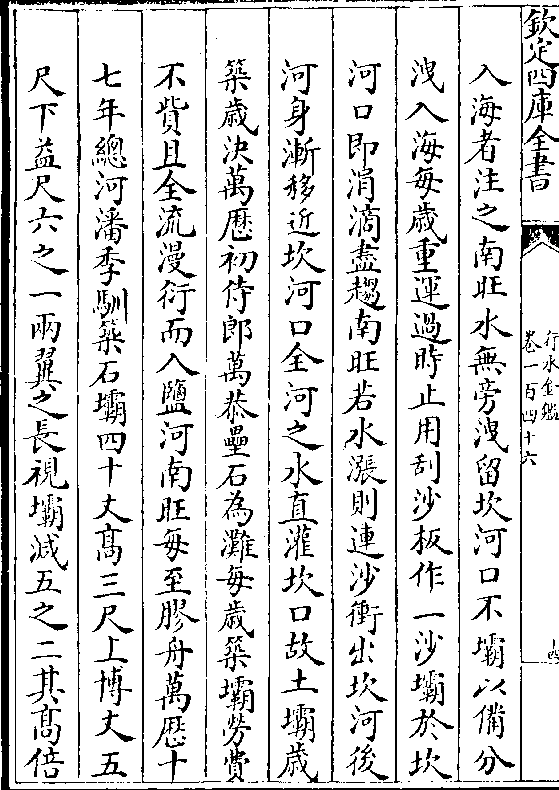 欽定四庫全書
行水金鑑
卷一百四十六
十四
入海者注之南旺水無旁洩留坎河口不壩以備分
洩入海每歲重運過時止用刮沙板作一沙壩於坎
河口即涓滴盡趨南旺若水漲則連沙衝出坎河後
河身漸移近坎河口全河之水直灌坎口故土壩歲
築歲決萬厯初侍郎萬恭壘石為灘每歲築壩勞費
不貲且全流漫衍而入鹽河南旺每至膠舟萬厯十
七年總河潘季馴築石壩四十丈高三尺上博丈五
尺下益尺六之一兩翼之長視壩減五之二其高倍